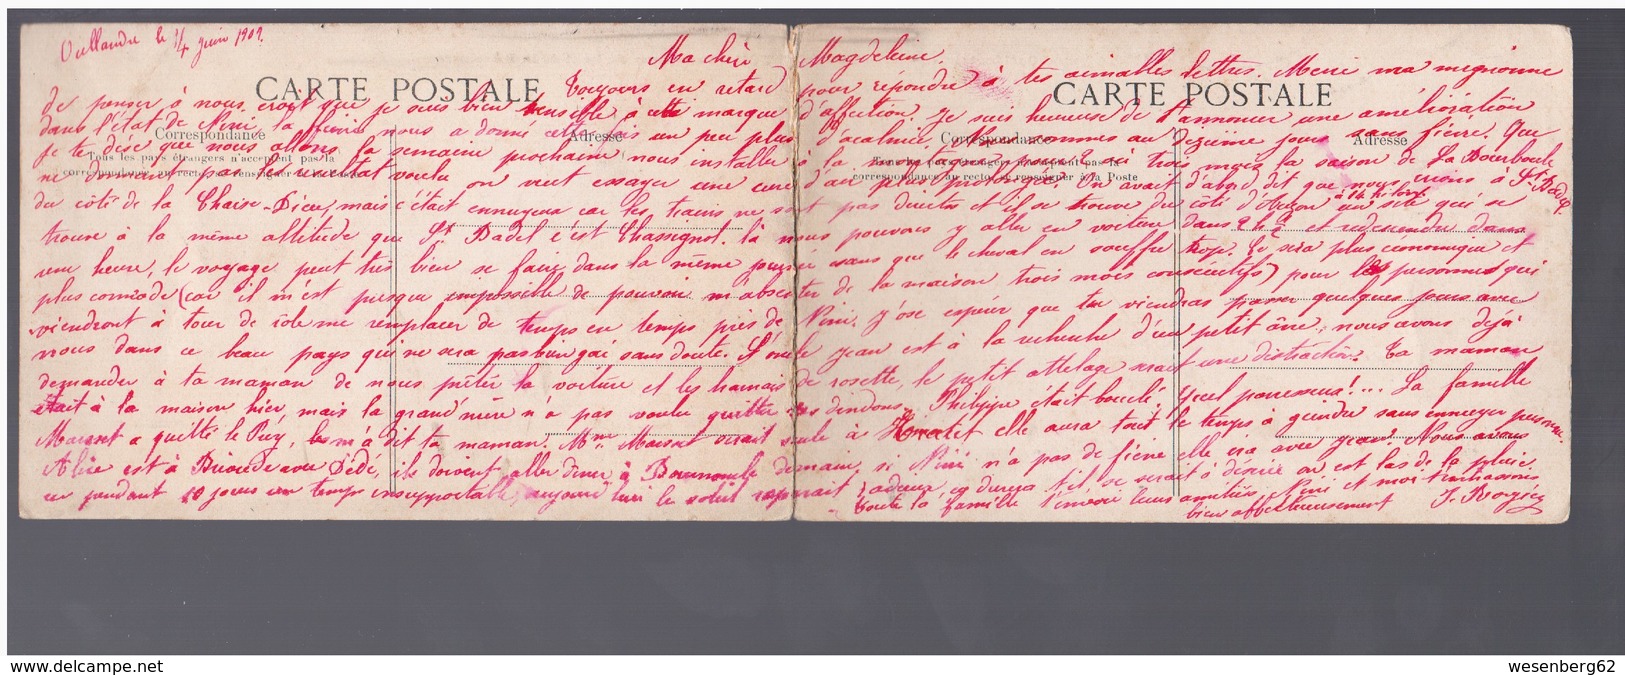 le 14 juin 1909.
Ma chère Magdeleine.
CARTE POSTALE
CARTE POSTALE
Toujours en retard pour répondre à tes aimables lettres. Merci ma mignonne
de penser à nous, crois que je suis bien sensible à cette marque d'affection. Je suis heureuse de t'annoncer une amélioration
dans l'état de Nini la fièvre nous a donné un peu plus d'acalmie, nous sommes au dixième jour sans fièvre. Que
Correspondance
Adresse
Correspondance
Adresse
je te dise que nous allons la semaine prochaine nous installer à la trois mois, la saison de La Bourboule
Tous les pays étrangers n'acceptent pas la
correspondance au recto, se renseigner à la Poste
ne donnant pas le résultat voulu on veut essayer une cure d'air plus prolongée. On avait d'abord dit que nous irions à St
du côté de la Chaise-Dieu, mais c'était ennuyeux car les trains ne sont pas directs et il se trouve du côté d'Auzon un site qui se
trouve à la même altitude que St c'est Chassignol. là nous pouvons y aller en voiture dans 2 h ½ et redescendre dans
une heure, le voyage peut très bien se faire dans la même journée sans que le cheval en souffre trop. Ce sera plus économique et
plus comode (car il m'est presque impossible de pouvoir m'absenter de la maison trois mois consécutifs) pour les personnes qui
viendront à tour de rôle me remplacer de temps en temps près de Nini, j'ose espérer que tu viendras passer quelques jours avec
nous dans ce beau pays qui ne sera pas bien gai sans doute. Jean est à la recherche d'un petit âne, nous avons déjà
demander à ta maman de nous prêter la voiture et les harnais de rosette, le petit attelage serait une distraction. Ta maman
était à la maison hier, mais la grand'mère n'a pas voulu quitter ses dindons, Philippe était bouclé, quel La famille
a quitté le Puy, m'a dit ta maman. Mme serait seule à elle aura tout le temps à geindre sans ennuyer personne.
Alice est à Brioude avec Dédé, ils doivent aller dîner à demain, si Nini n'a pas de fièvre elle ira avec Jean. Nous avons
eu pendant 10 jours un temps insupportable, aujourd'hui le soleil durera t'il, ce serait à désirer on est las de la pluie.
Toute la famille t'envoie leurs amitiés, Nini et moi t'embrassons
bien affectueusement
wesenberg62
www.delcampe.net